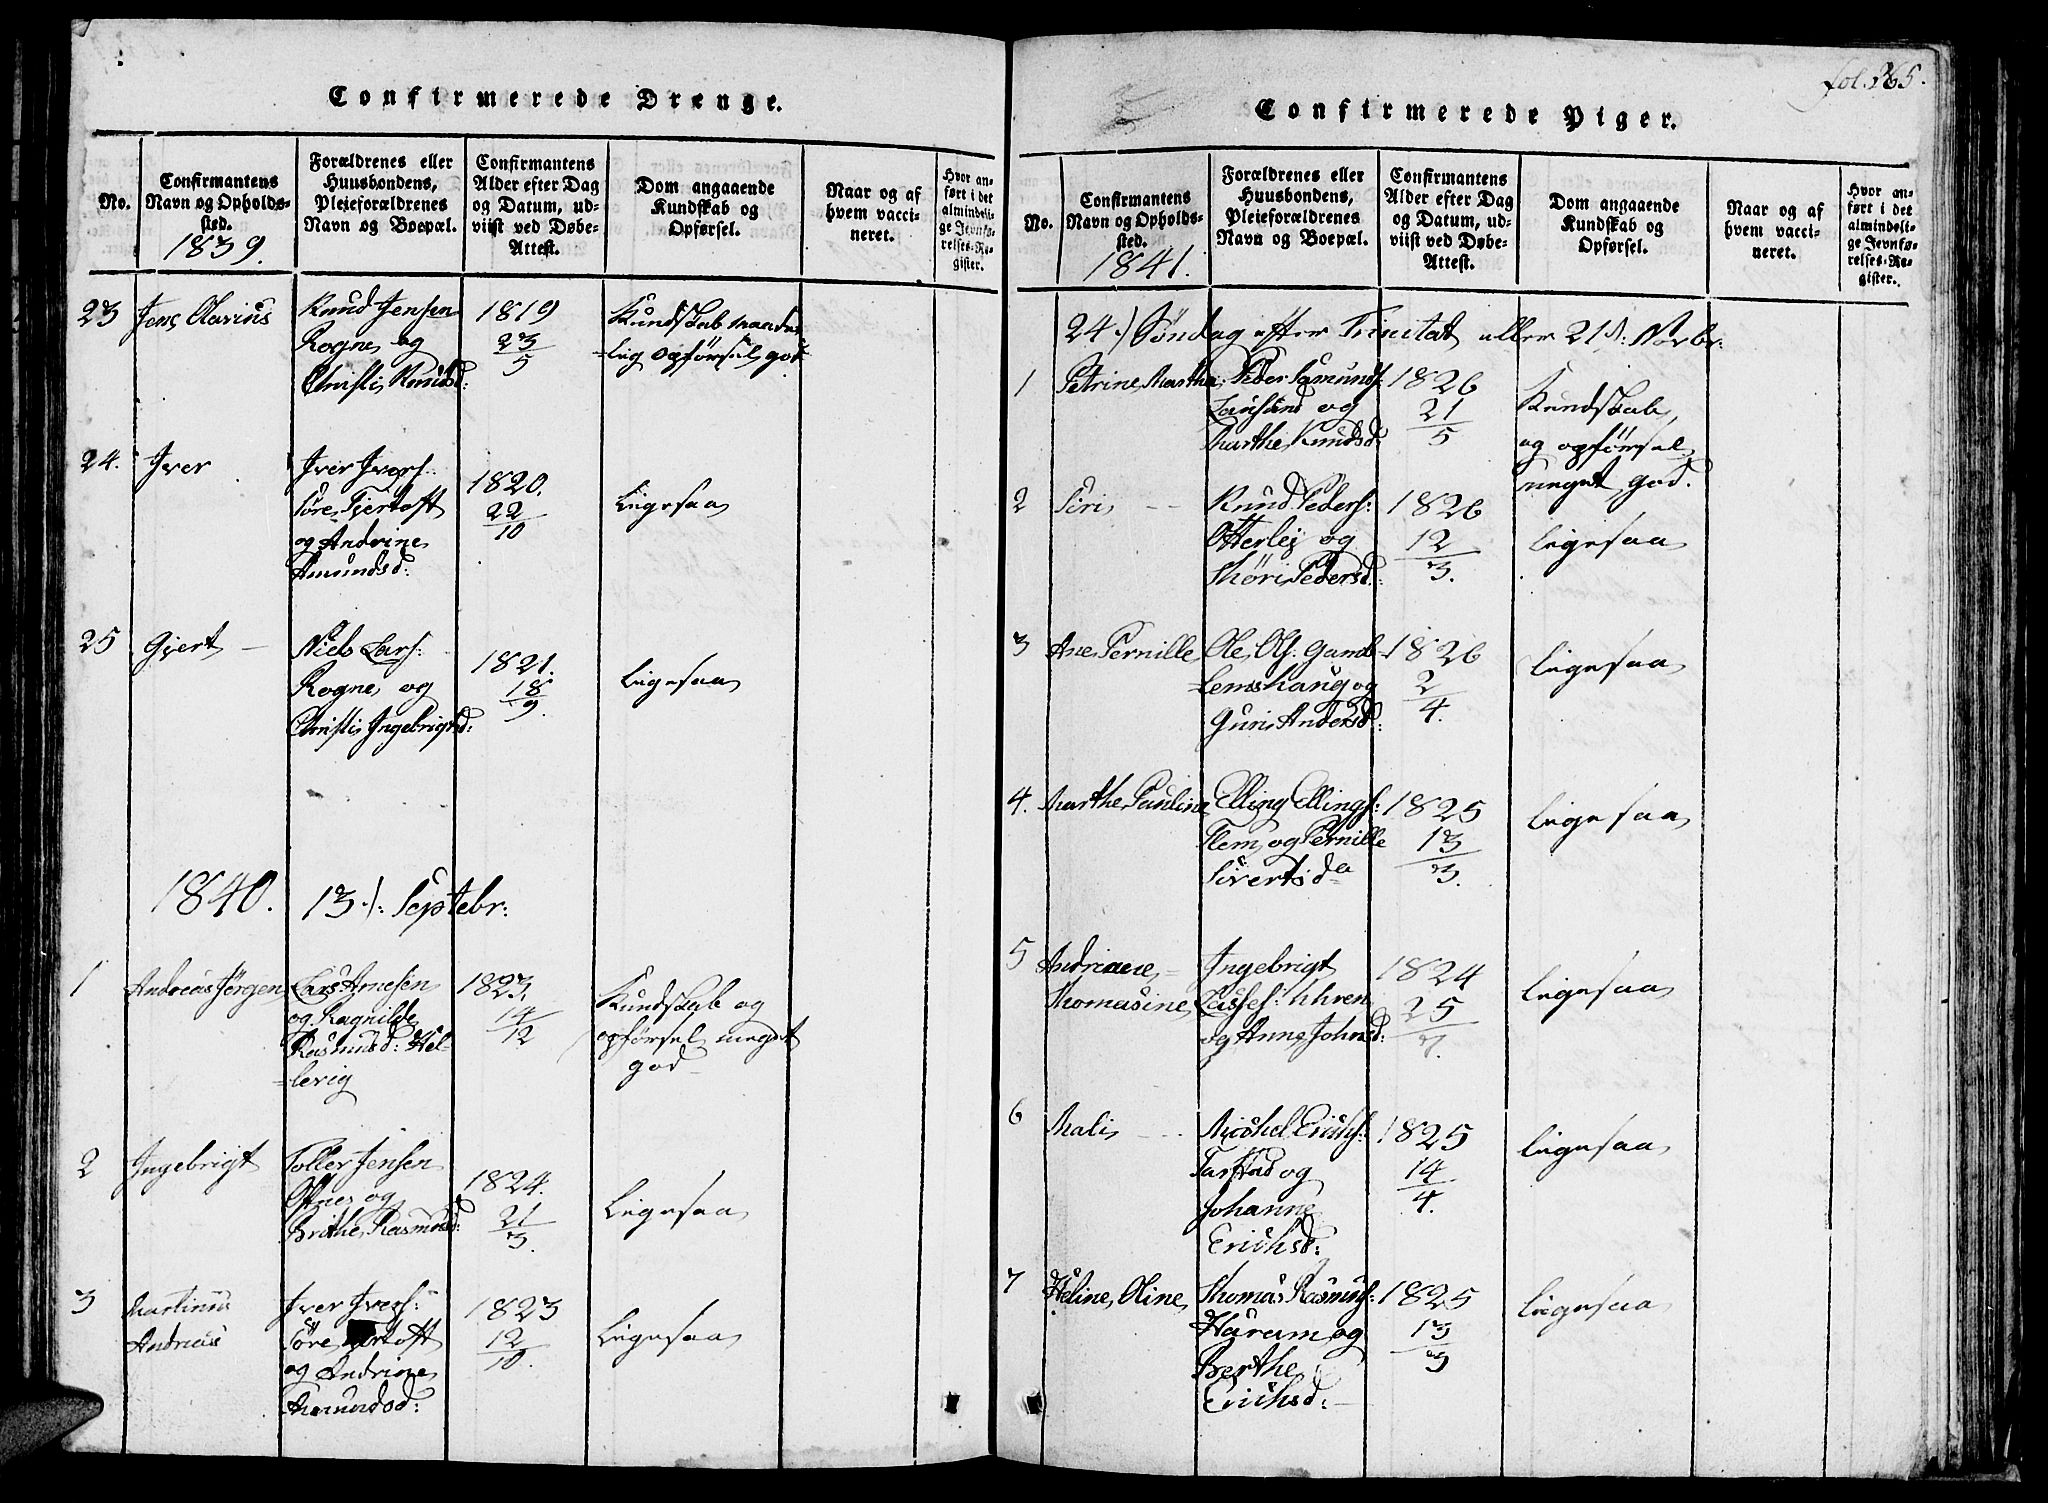 Confirmerede Drenge.
No.
Confirmantens
Navn og Opholds-
sted.
1839.
Forældrenes eller
Huusbondens,
Pleieforældrenes
Navn og Boepæl.
Confirmantens
Alder efter Dag
og Datum, ud-
viist ved Døbe-
Attest.
Dom angaaende
Kundskab og
Opførsel.
Naar og af
hvem vacci-
neret.
Hvor an-
ført i det
almindeli-
ge Jevnfø-
relses-Re-
gister.
23 Jens Olavius
Knud Jensen
Rogne og
Christi Knudsd:
1819
23
5
Kundskab maade-
lig opførsel god
24. Iver
Iver Ivers:
Søre Fjertoft
og Andrine
Amundsd:
1820.
22
10
Ligesaa
25 Gjert -
Niels Lars:
Rogne og
Christi Ingebrigtsd:
1821.
18
9.
Ligesaa
1840. 13./: Septebr:
1 Andreas Jørgen
Lars Arnesen
og Ragnilde
Rasmusd: Hel-
-levig
1823.
14
12
Kundskab og
opførsel meget
god
2 Ingebrigt
Toller Jensen
og
Brithe Rasmusd:
1824.
21
3.
Ligesaa
3 Martinus
Andreas
Iver Ivers:
Søre
og Andrine
Amundsd:
1823
12
10.
Ligesaa
fol. 365.
Confirmerede Piger.
No.
Confirmantens
Navn og Opholds-
sted.
1841.
Forældrenes eller
Huusbondens,
Pleieforældrenes
Navn og Boepæl.
Confirmantens
Alder efter Dag
og Datum, ud-
viist ved Døbe-
Attest.
Dom angaaende
Kundskab og
Opførsel.
Naar og af
hvem vacci-
neret.
Hvor an-
ført i det
almindeli-
ge Jevnfø-
relses-Re-
gister.
24./ Søndag efter Trinitat eller 21de: Novbr:
1 Petrine Martha
Peder Samunds:
Longsund og
Marthe Knudsd:
1826
21
5
Kundskab
og opførsel
meget god.
2 Siri --
Knud Peders:
Otterlej og
Thøri Pedersd:
1826
12
3.
Ligesaa
3 Ane Pernille
Ole Ols: Gam-
-lemshaug og
Guri Andersd:
1826
2
4.
Ligesaa
4. Marthe Pauline
Elling Ellings:
Flem og Pernille
Siverts da
1825
13
3.
Ligesaa
5 Andriane -
Thomasine
Ingebrigt
Lasses: Uhren
og Anne Johnsd:
1824
25
7.
Ligesaa
6 Mali --
Michel Erichs:
og
Johanne
Erichsd:
1825
14
4.
Ligesaa
7 Heline Oline
Thomas Rasmus:
Haram og
Berthe
Erichsd:
1825
13
3
Ligesaa